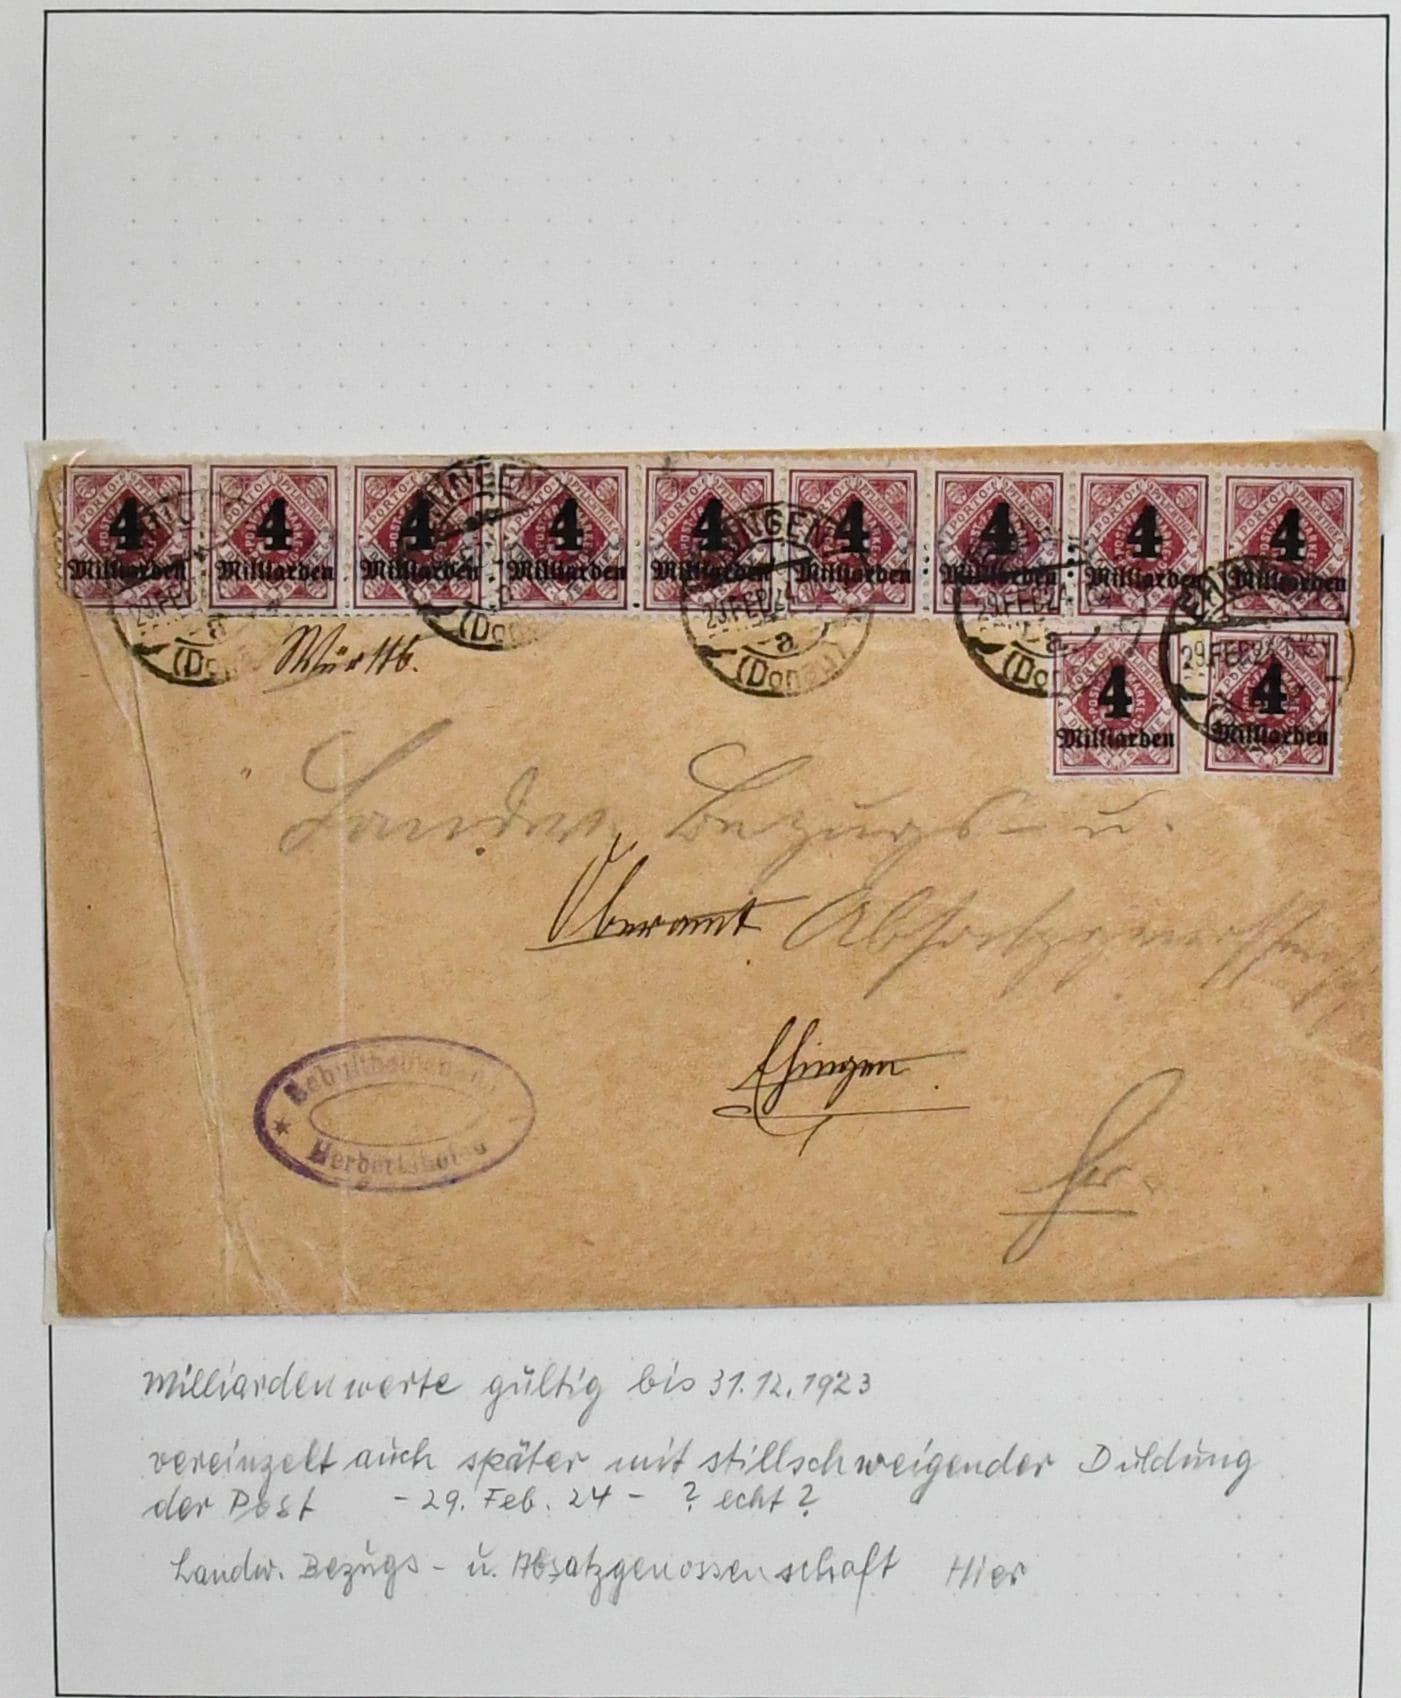 4 4 4 4 4 4 4 4 4
Milliarden Milliarden Milliarden Milliarden Milliarden Milliarden Milliarden Milliarden Milliarden
29.FEB.24
a
(Donau)
4 4
Milliarden Milliarden
Württb.
Landw. Bezugs- u.
Oberamt Absatzgenossensch
Ehingen.
Schultheissenamt
Herbertshofen
Hier.
Milliardenwerte gültig bis 31.12.1923
vereinzelt auch später mit stillschweigender Duldung
der Post - 29. Feb. 24 - ? echt ?
Landw. Bezugs- u. Absatzgenossenschaft Hier